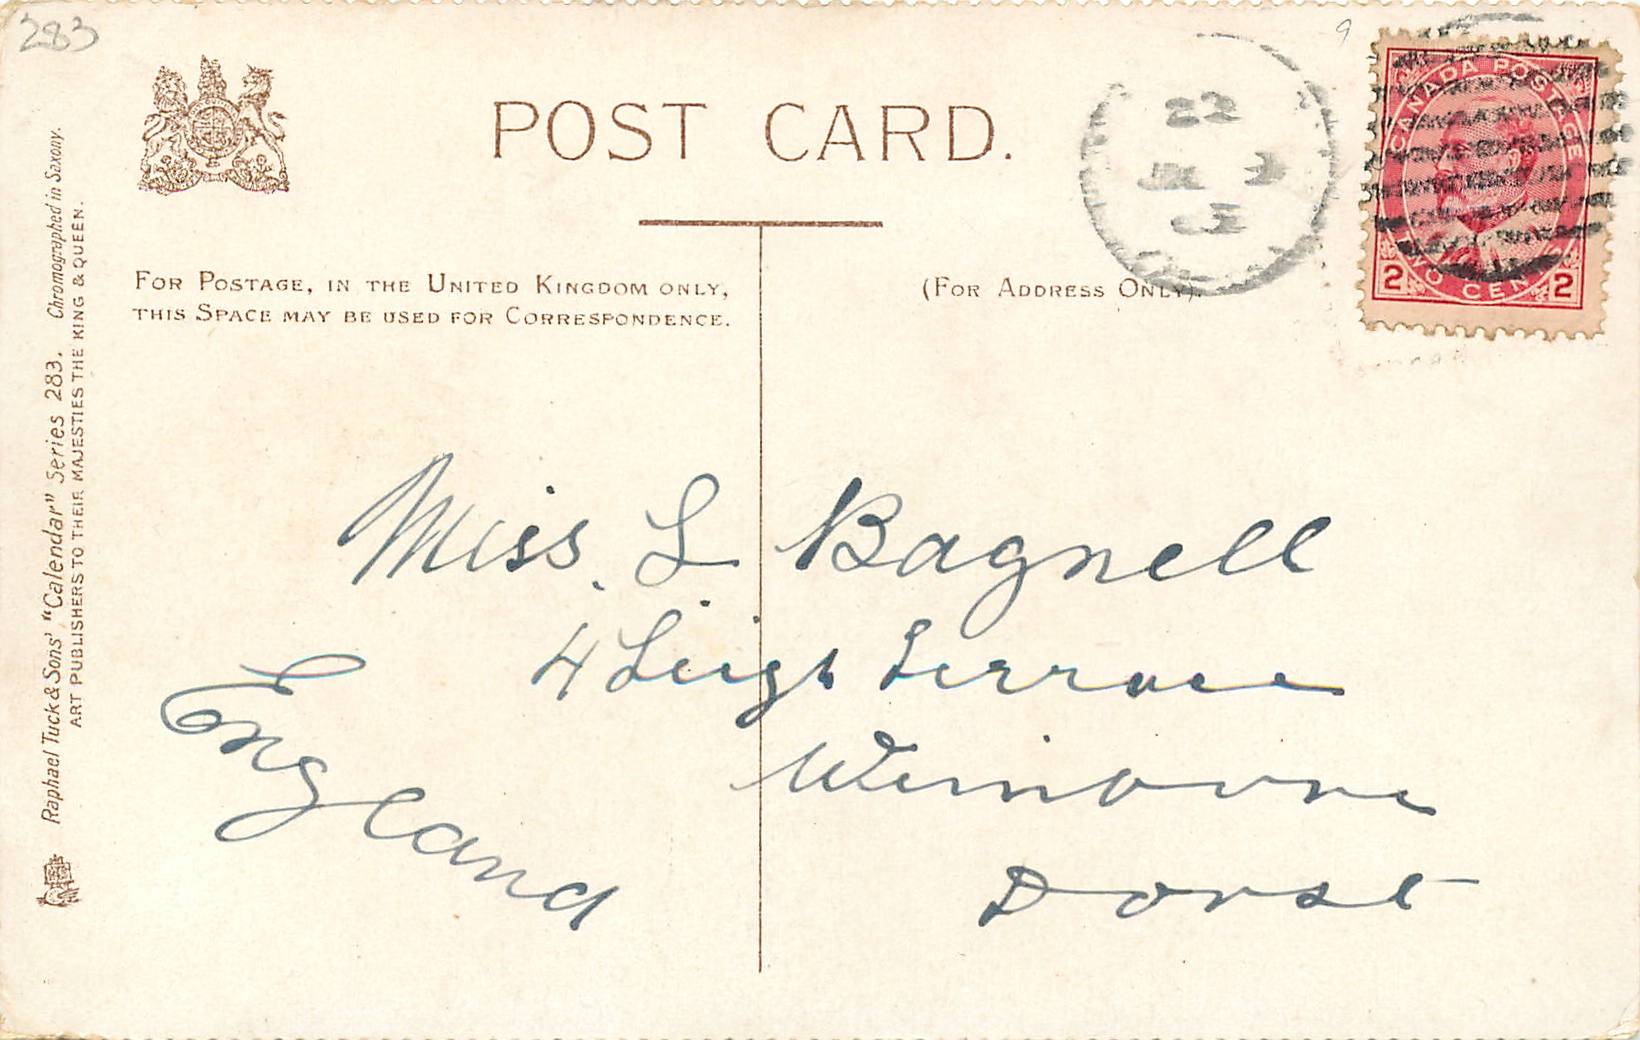 283
9
POST CARD.
FOR POSTAGE, IN THE UNITED KINGDOM ONLY,
THIS SPACE MAY BE USED FOR CORRESPONDENCE.
(FOR ADDRESS ONLY).
22
CANADA POSTAGE
TWO CENTS
2 2
Miss. L Bagnell
4 Leigh Terrace
Wimborne
Dorset
England
Raphael Tuck & Sons' "Calendar" Series 283. Chromographed in Saxony.
ART PUBLISHERS TO THEIR MAJESTIES THE KING & QUEEN.